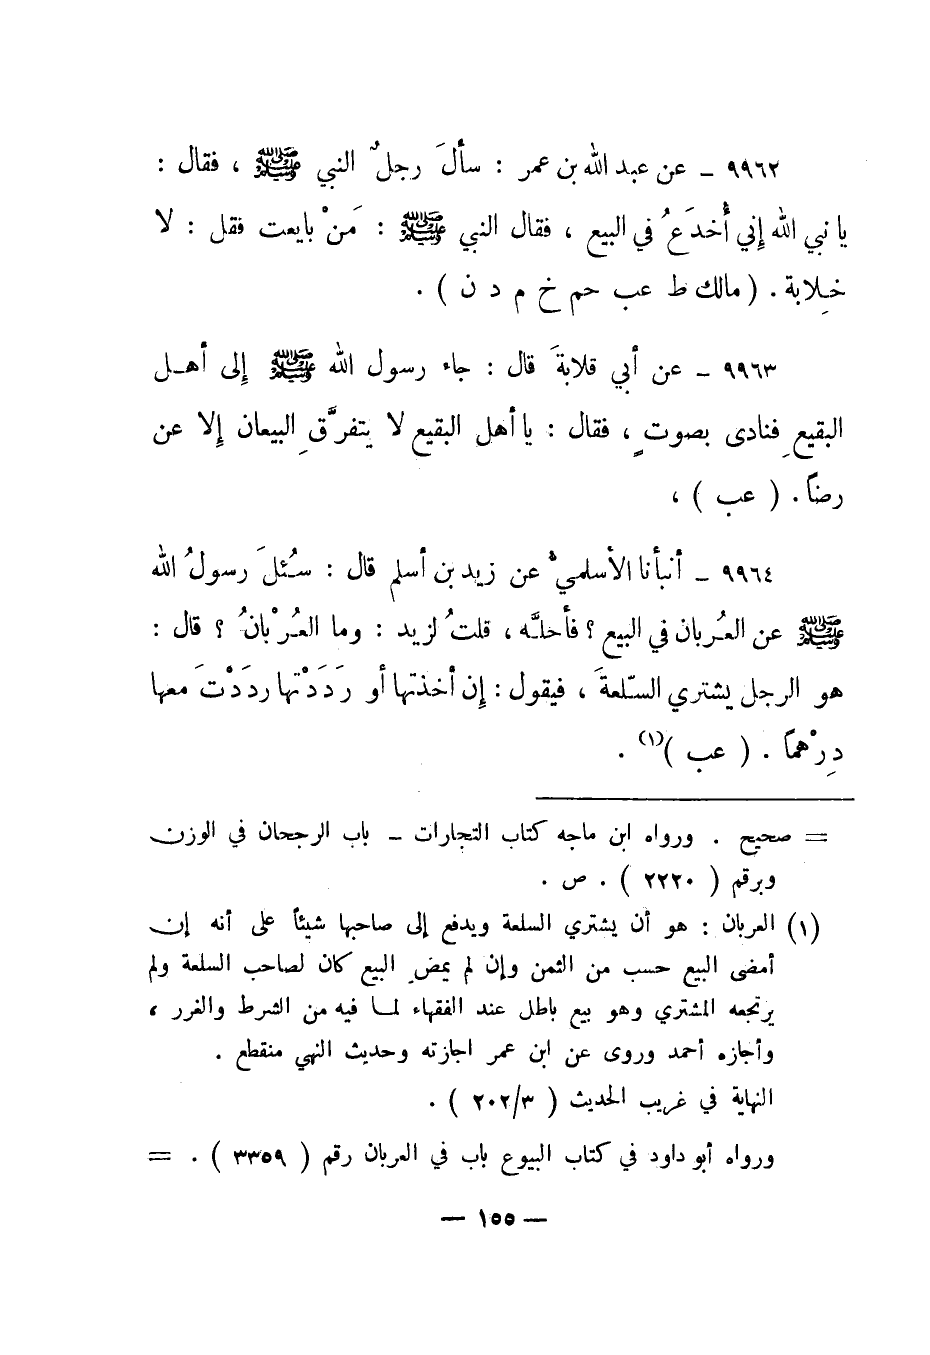 ٩٩٦٢ ـ عن عبد الله بن عمر : سألَ رجلٌ النبي ﷺ ، فقال :
يا نبي الله إني أُخدَعُ في البيع ، فقال النبي ﷺ : مَنْ بايعت فقل : لا
خِلابة . ( مالك ط عب حم خ م د ن ) .
٩٩٦٣ ـ عن أبي قلابةَ قال : جاء رسول الله ﷺ إلى أهل
البقيعِ فنادى بصوتٍ ، فقال : يا أهل البقيع لا يتفرَّقِ البيعان إلا عن
رضاً . ( عب ) ،
٩٩٦٤ ـ أنبأنا الأسلميُّ عن زيد بن أسلم قال : سُئلَ رسولُ الله
ﷺ عن العُربان في البيع ؟ فأحلَّه ، قلتُ لزيد : وما العُرْبانُ ؟ قال :
هو الرجل يشتري السّلعةَ ، فيقول : إن أخذتها أو رَدَدْتها رددْتَ معها
دِرْهماً . ( عب )(١) .
= صحيح . ورواه ابن ماجه كتاب التجارات ـ باب الرجحان في الوزن
وبرقم ( ٢٢٢٠ ) . ص .
(١) العربان : هو أن يشتري السلعة ويدفع إلى صاحبها شيئاً على أنه إن
أمضى البيع حسب من الثمن وإن لم يمضِ البيع كان لصاحب السلعة ولم
يرتجعه المشتري وهو بيع باطل عند الفقهاء لما فيه من الشرط والغرر ،
وأجازه أحمد وروى عن ابن عمر اجازته وحديث النهي منقطع .
النهاية في غريب الحديث ( ٢٠٢/٣ ) .
ورواه أبو داود في كتاب البيوع باب في العربان رقم ( ٣٣٥٩ ) . =
— ١٥٥ —